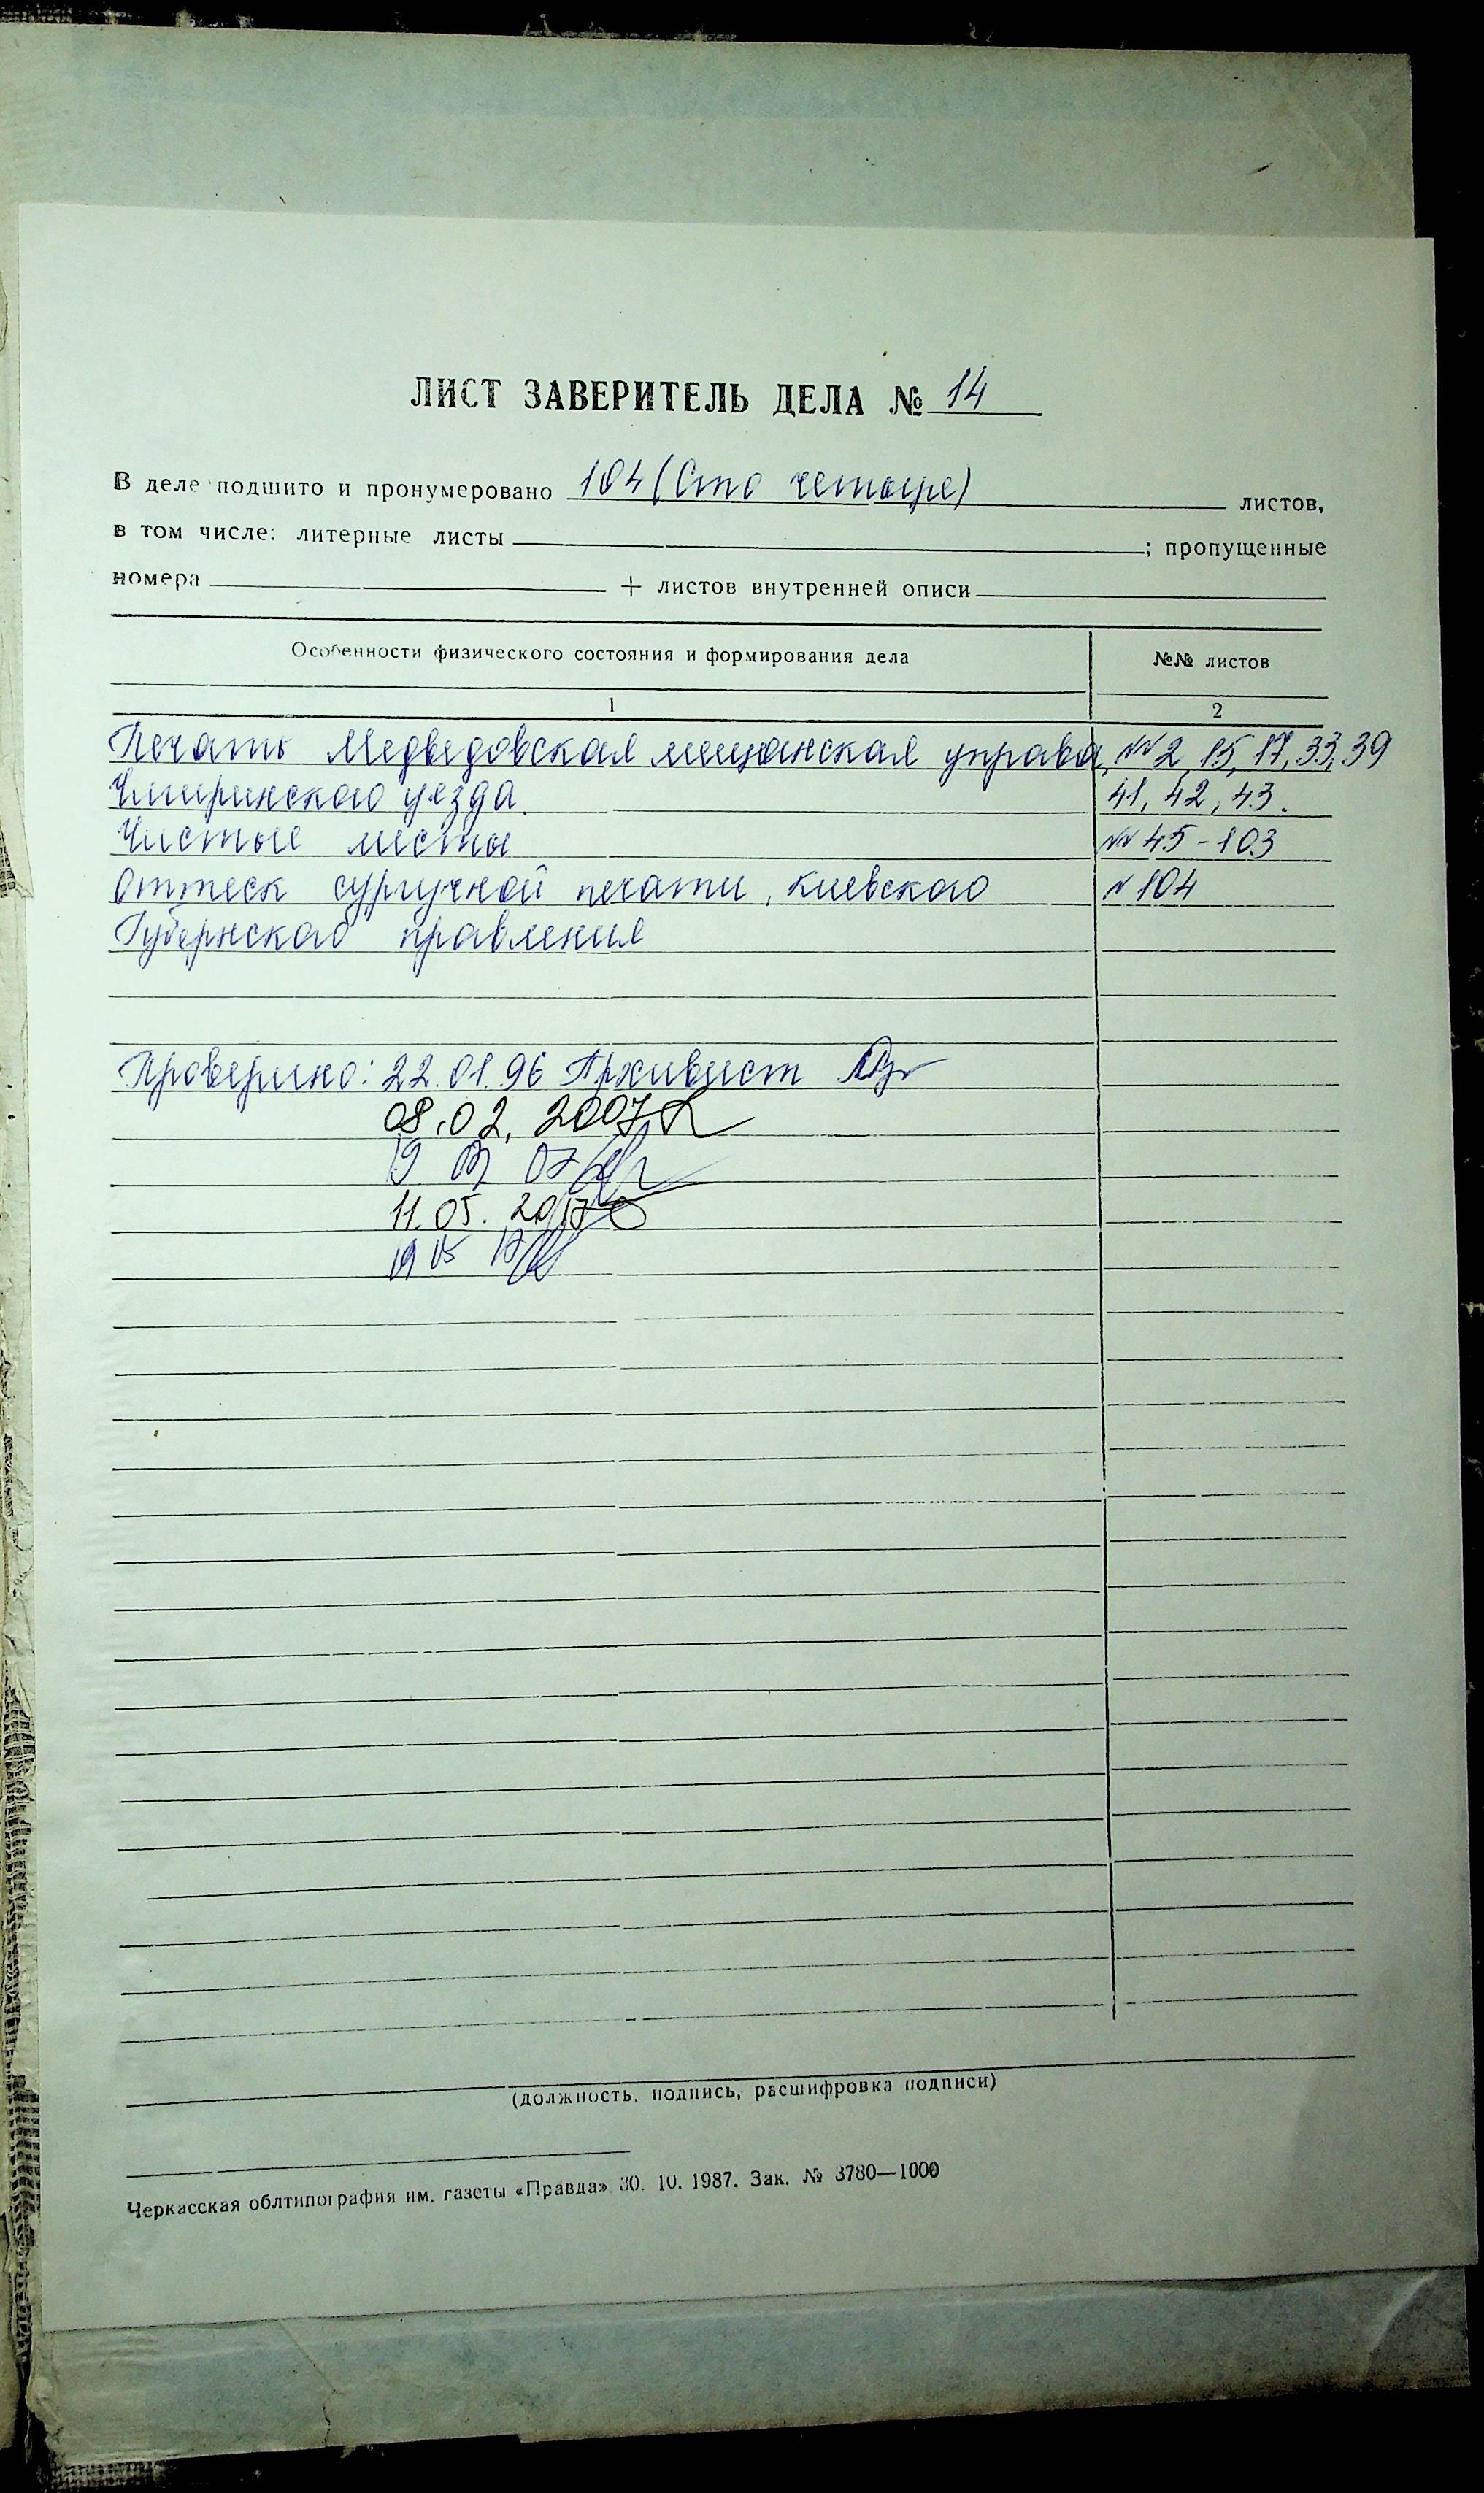 ЛИСТ ЗАВЕРИТЕЛЬ ДЕЛА № 14
В деле подшито и пронумеровано 104 (Сто четыре) листов,
в том числе: литерные листы ; пропущенные
номера + листов внутренней описи
Особенности физического состояния и формирования дела №№ листов
1 2
Печать Медведовская мещанская управа, №№ 2, 15, 17, 33, 39
Чигиринского уезда. 41, 42, 43.
Чистые листы №№ 45-103
Оттеск сургучной печати, Киевского № 104
Губернского правления
Проверено: 22.01.96 Архивист
08.02.2007
19 03 07
11.05.2017
19 05 17
(должность, подпись, расшифровка подписи)
Черкасская облтипография им. газеты «Правда» 30. 10. 1987. Зак. № 3780—1000